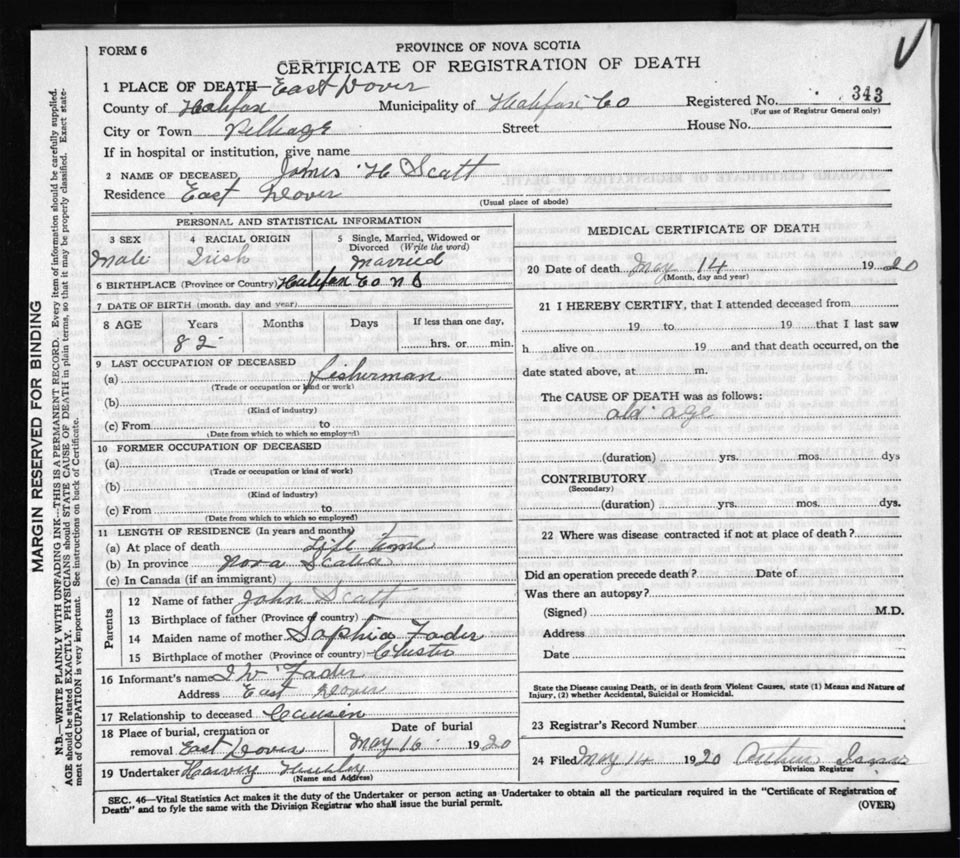 FORM 6
PROVINCE OF NOVA SCOTIA
CERTIFICATE OF REGISTRATION OF DEATH
1 PLACE OF DEATH—East Dover
County of Halifax Municipality of Halifax Co Registered No. 343
(For use of Registrar General only)
City or Town Village Street House No.
If in hospital or institution, give name
2 NAME OF DECEASED James H Scatt
Residence East Dover
(Usual place of abode)
PERSONAL AND STATISTICAL INFORMATION
3 SEX 4 RACIAL ORIGIN 5 Single, Married, Widowed or
Divorced (Write the word)
Male Irish Married
6 BIRTHPLACE (Province or Country) Halifax Co N S
7 DATE OF BIRTH (month, day and year)
8 AGE Years Months Days If less than one day,
82 hrs. or min.
9 LAST OCCUPATION OF DECEASED
(a) fisherman
(Trade or occupation or kind or work)
(b)
(Kind of industry)
(c) From to
(Date from which to which so employed)
10 FORMER OCCUPATION OF DECEASED
(a)
(Trade or occupation or kind of work)
(b)
(Kind of industry)
(c) From to
(Date from which to which so employed)
11 LENGTH OF RESIDENCE (In years and months)
(a) At place of death Life time
(b) In province Nova Scatia
(c) In Canada (if an immigrant)
Parents
12 Name of father John Scatt
13 Birthplace of father (Province of country)
14 Maiden name of mother Sophia Fader
15 Birthplace of mother (Province or country) Chester
16 Informant's name I W Fader
Address East Dover
17 Relationship to deceased Causin
18 Place of burial, cremation or Date of burial
removal East Dover May 16 1920
19 Undertaker Harvey
(Name and Address)
MEDICAL CERTIFICATE OF DEATH
20 Date of death May 14 1920
(Month, day and year)
21 I HEREBY CERTIFY, that I attended deceased from
19 to 19 that I last saw
h alive on 19 and that death occurred, on the
date stated above, at m.
The CAUSE OF DEATH was as follows:
old age
(duration) yrs. mos. dys
CONTRIBUTORY
(Secondary)
(duration) yrs. mos. dys.
22 Where was disease contracted if not at place of death?
Did an operation precede death? Date of
Was there an autopsy?
(Signed) M.D.
Address
Date
State the Disease causing Death, or in death from Violent Causes, state (1) Means and Nature of
Injury, (2) whether Accidental, Suicidal or Homicidal.
23 Registrar's Record Number
24 Filed May 14 1920 Arthur
Division Registrar
SEC. 46—Vital Statistics Act makes it the duty of the Undertaker or person acting as Undertaker to obtain all the particulars required in the "Certificate of Registration of
Death" and to fyle the same with the Division Registrar who shall issue the burial permit.
(OVER)
MARGIN RESERVED FOR BINDING
N.B.—WRITE PLAINLY WITH UNFADING INK—THIS IS A PERMANENT RECORD. Every item of information should be carefully supplied.
AGE should be stated EXACTLY. PHYSICIANS should STATE CAUSE OF DEATH in plain terms, so that it may be properly classified. Exact state-
ment of OCCUPATION is very important. See instructions on back of Certificate.